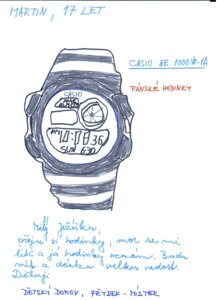 MARTIN, 17 LET
CASIO AE 1000W-1A
PÁNSKÉ HODINKY
CASIO
PM 10:11 36
SUN 6-30
Milý Ježíšku,
přeju si hodinky, moc se mi
líbí a já hodinky nemám. Budu
mít z dárku velkou radost.
Děkuji
DĚTSKÝ DOMOV, FRÝDEK-MÍSTEK